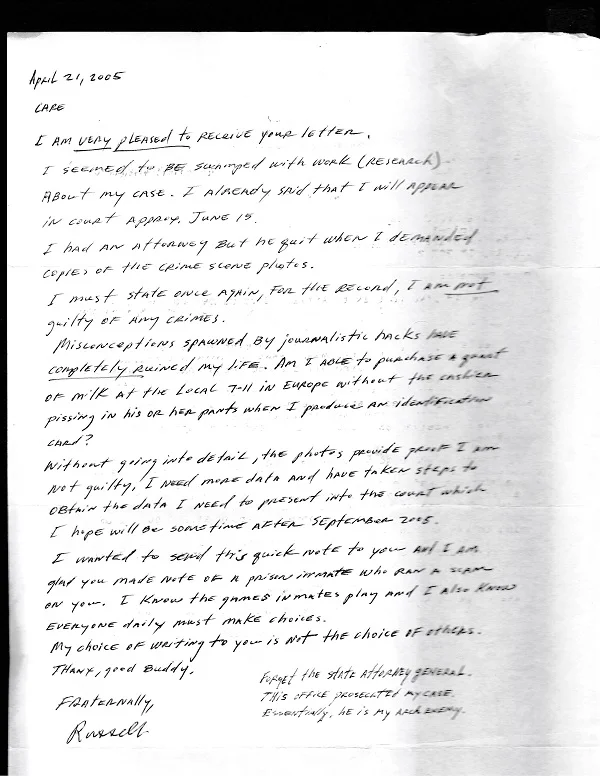 April 21, 2005
CARE
I AM VERY pleased to RECEIVE your letter.
I SEEMED to BE swamped with work (RESEARCH)
About my CASE. I Already said that I will APPEAR
in court Approx. June 15.
I had AN Attorney But he quit when I demanded
copies of the crime scene photos.
I must state once again, for the record, I am not
guilty of Any crimes.
Misconceptions spawned By journalistic hacks have
completely ruined my life. Am I ABLE to purchase a quart
of milk at the Local 7-11 in Europe without the cashier
pissing in his or her pants when I produce an identification
card?
Without going into detail, the photos provide proof I am
not guilty. I need more data and have taken steps to
obtain the data I need to present into the court which
I hope will Be sometime After September 2005.
I wanted to send this quick note to you and I am
glad you made note of a prison inmate who ran a scam
on you. I know the games inmates play and I also know
everyone daily must make choices.
My choice of writing to you is not the choice of others.
Thanx, good Buddy.
FRATERNALly,
Russell
Forget the state Attorney general.
This office prosecuted my case.
Essentially, he is my arch enemy.